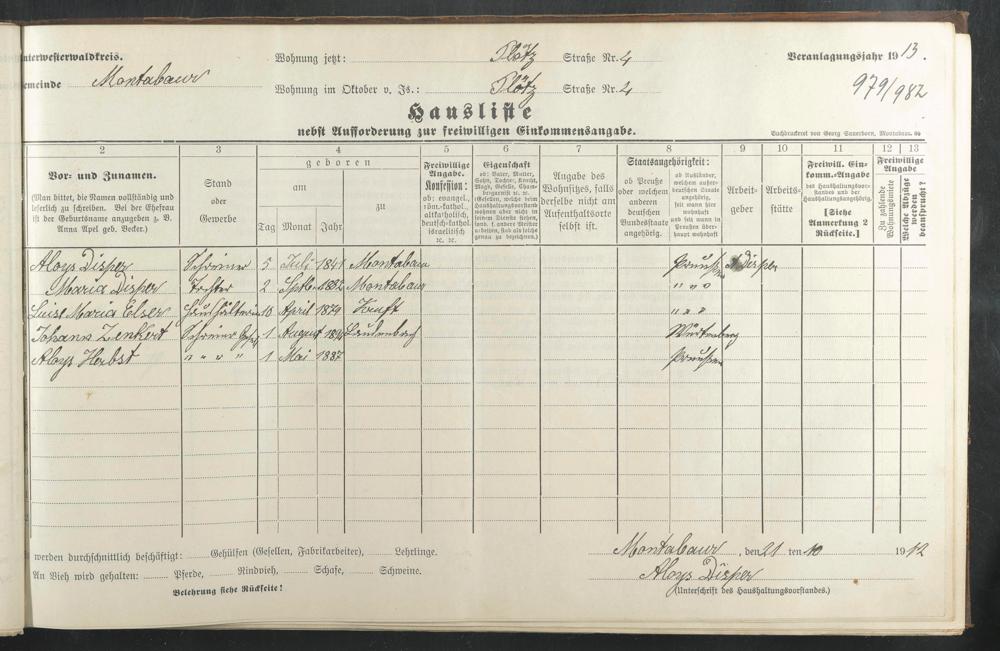 nterwesterwaldkreis. Wohnung jetzt: Plötz Straße Nr. 4 Veranlagungsjahr 1913.
emeinde Montabaur Wohnung im Oktober v. Js.: Plötz Straße Nr. 4 979/982
Hausliste
nebst Aufforderung zur freiwilligen Einkommensangabe.
Buchdruckerei von Georg Sauerborn, Montabaur.
2 3 4 5 6 7 8 9 10 11 12 13
Vor- und Zunamen.
(Man bittet, die Namen vollständig und
leserlich zu schreiben. Bei der Ehefrau
ist der Geburtsname anzugeben z. B.
Anna Apel geb. Becker.)
Stand
oder
Gewerbe
geboren
am
zu
Tag Monat Jahr
Freiwillige
Angabe.
Konfession:
ob: evangel.,
röm.-kathol.,
altkatholisch,
deutsch-kathol.
israelitisch
ꝛc. ꝛc.
Eigenschaft
ob: Vater, Mutter,
Sohn, Tochter, Knecht,
Magd, Geselle, Cham-
bergarnist ꝛc. ꝛc.
(Gesellen, welche beim
Haushaltungsvorstand
wohnen aber nicht in
seinem Dienste stehen
und f. andere Meister
arbeiten, sind als solche
genau zu bezeichnen.)
Angabe des
Wohnsitzes, falls
derselbe nicht am
Aufenthaltsorte
selbst ist.
Staatsangehörigkeit:
ob Preuße
oder welchem
anderen
deutschen
Bundesstaate
angehörig.
ob Ausländer,
welchem außer-
deutschen Staate
angehörig,
seit wann hier
wohnhaft
und seit wann in
Preußen über-
haupt wohnhaft
Arbeit-
geber
Arbeits-
stätte
Freiwill. Ein-
komm.-Angabe
des Haushaltungsvor-
standes und der
Haushaltungsangehörig.
[Siehe
Anmerkung 2
Rückseite.]
Freiwillige
Angabe
Zu zahlende
Wohnungsmiete
Welche Abzüge
werden
beansprucht?
Aloys Disper Schreiner 5 Juli 1841 Montabaur Preußen A Disper
Maria Disper Tochter 2 Septb. 1882 Montabaur " " "
Luise Maria Elser Haushälterin 10 April 1879 " " "
Johann Zenkert Schreiner Gesell 1 August Laudenbach Würtenberg
Aloys Herbst " " " " 1 Mai 1887 Preußen
werden durchschnittlich beschäftigt: Gehülfen (Gesellen, Fabrikarbeiter), Lehrlinge.
An Vieh wird gehalten: Pferde, Rindvieh, Schafe, Schweine.
Belehrung siehe Rückseite!
Montabaur, den 21 ten 10 1912
Aloys Disper
(Unterschrift des Haushaltungsvorstandes.)